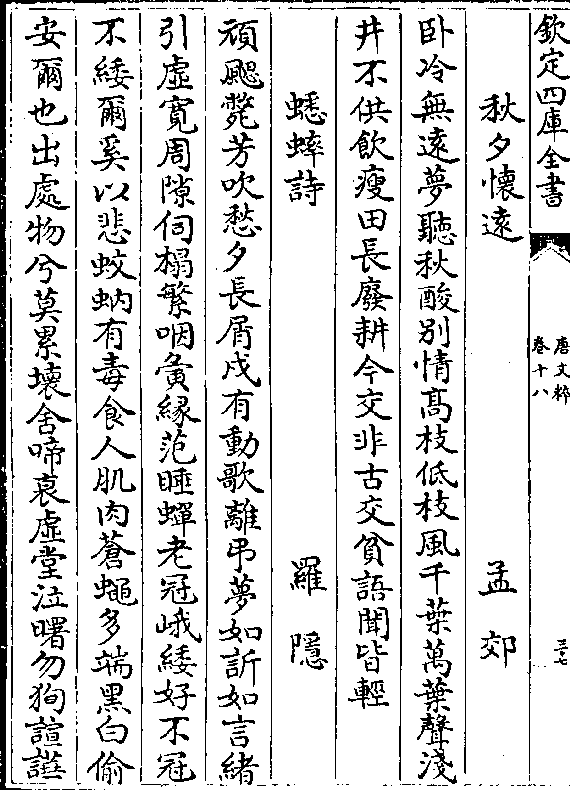 欽定四庫全書
唐文粹
卷十八
三十七
秋夕懷遠　孟郊
卧冷無遠夢聽秋酸别情髙枝低枝風千葉萬葉聲淺
井不供飲瘦田長廢耕今交非古交貧語聞皆輕
蟋蟀詩　羅隱
頑颸斃芳吹愁夕長屑戍有動歌離弔夢如訢如言緒
引虛寛周隙伺榻繁咽夤縁范睡蟬老冠峨緌好不冠
不緌爾奚以悲蚊蚋有毒食人肌肉蒼蠅多端黑白偷
安爾也出處物兮莫累壊舍啼衷虛堂泣曙勿狥諠譁